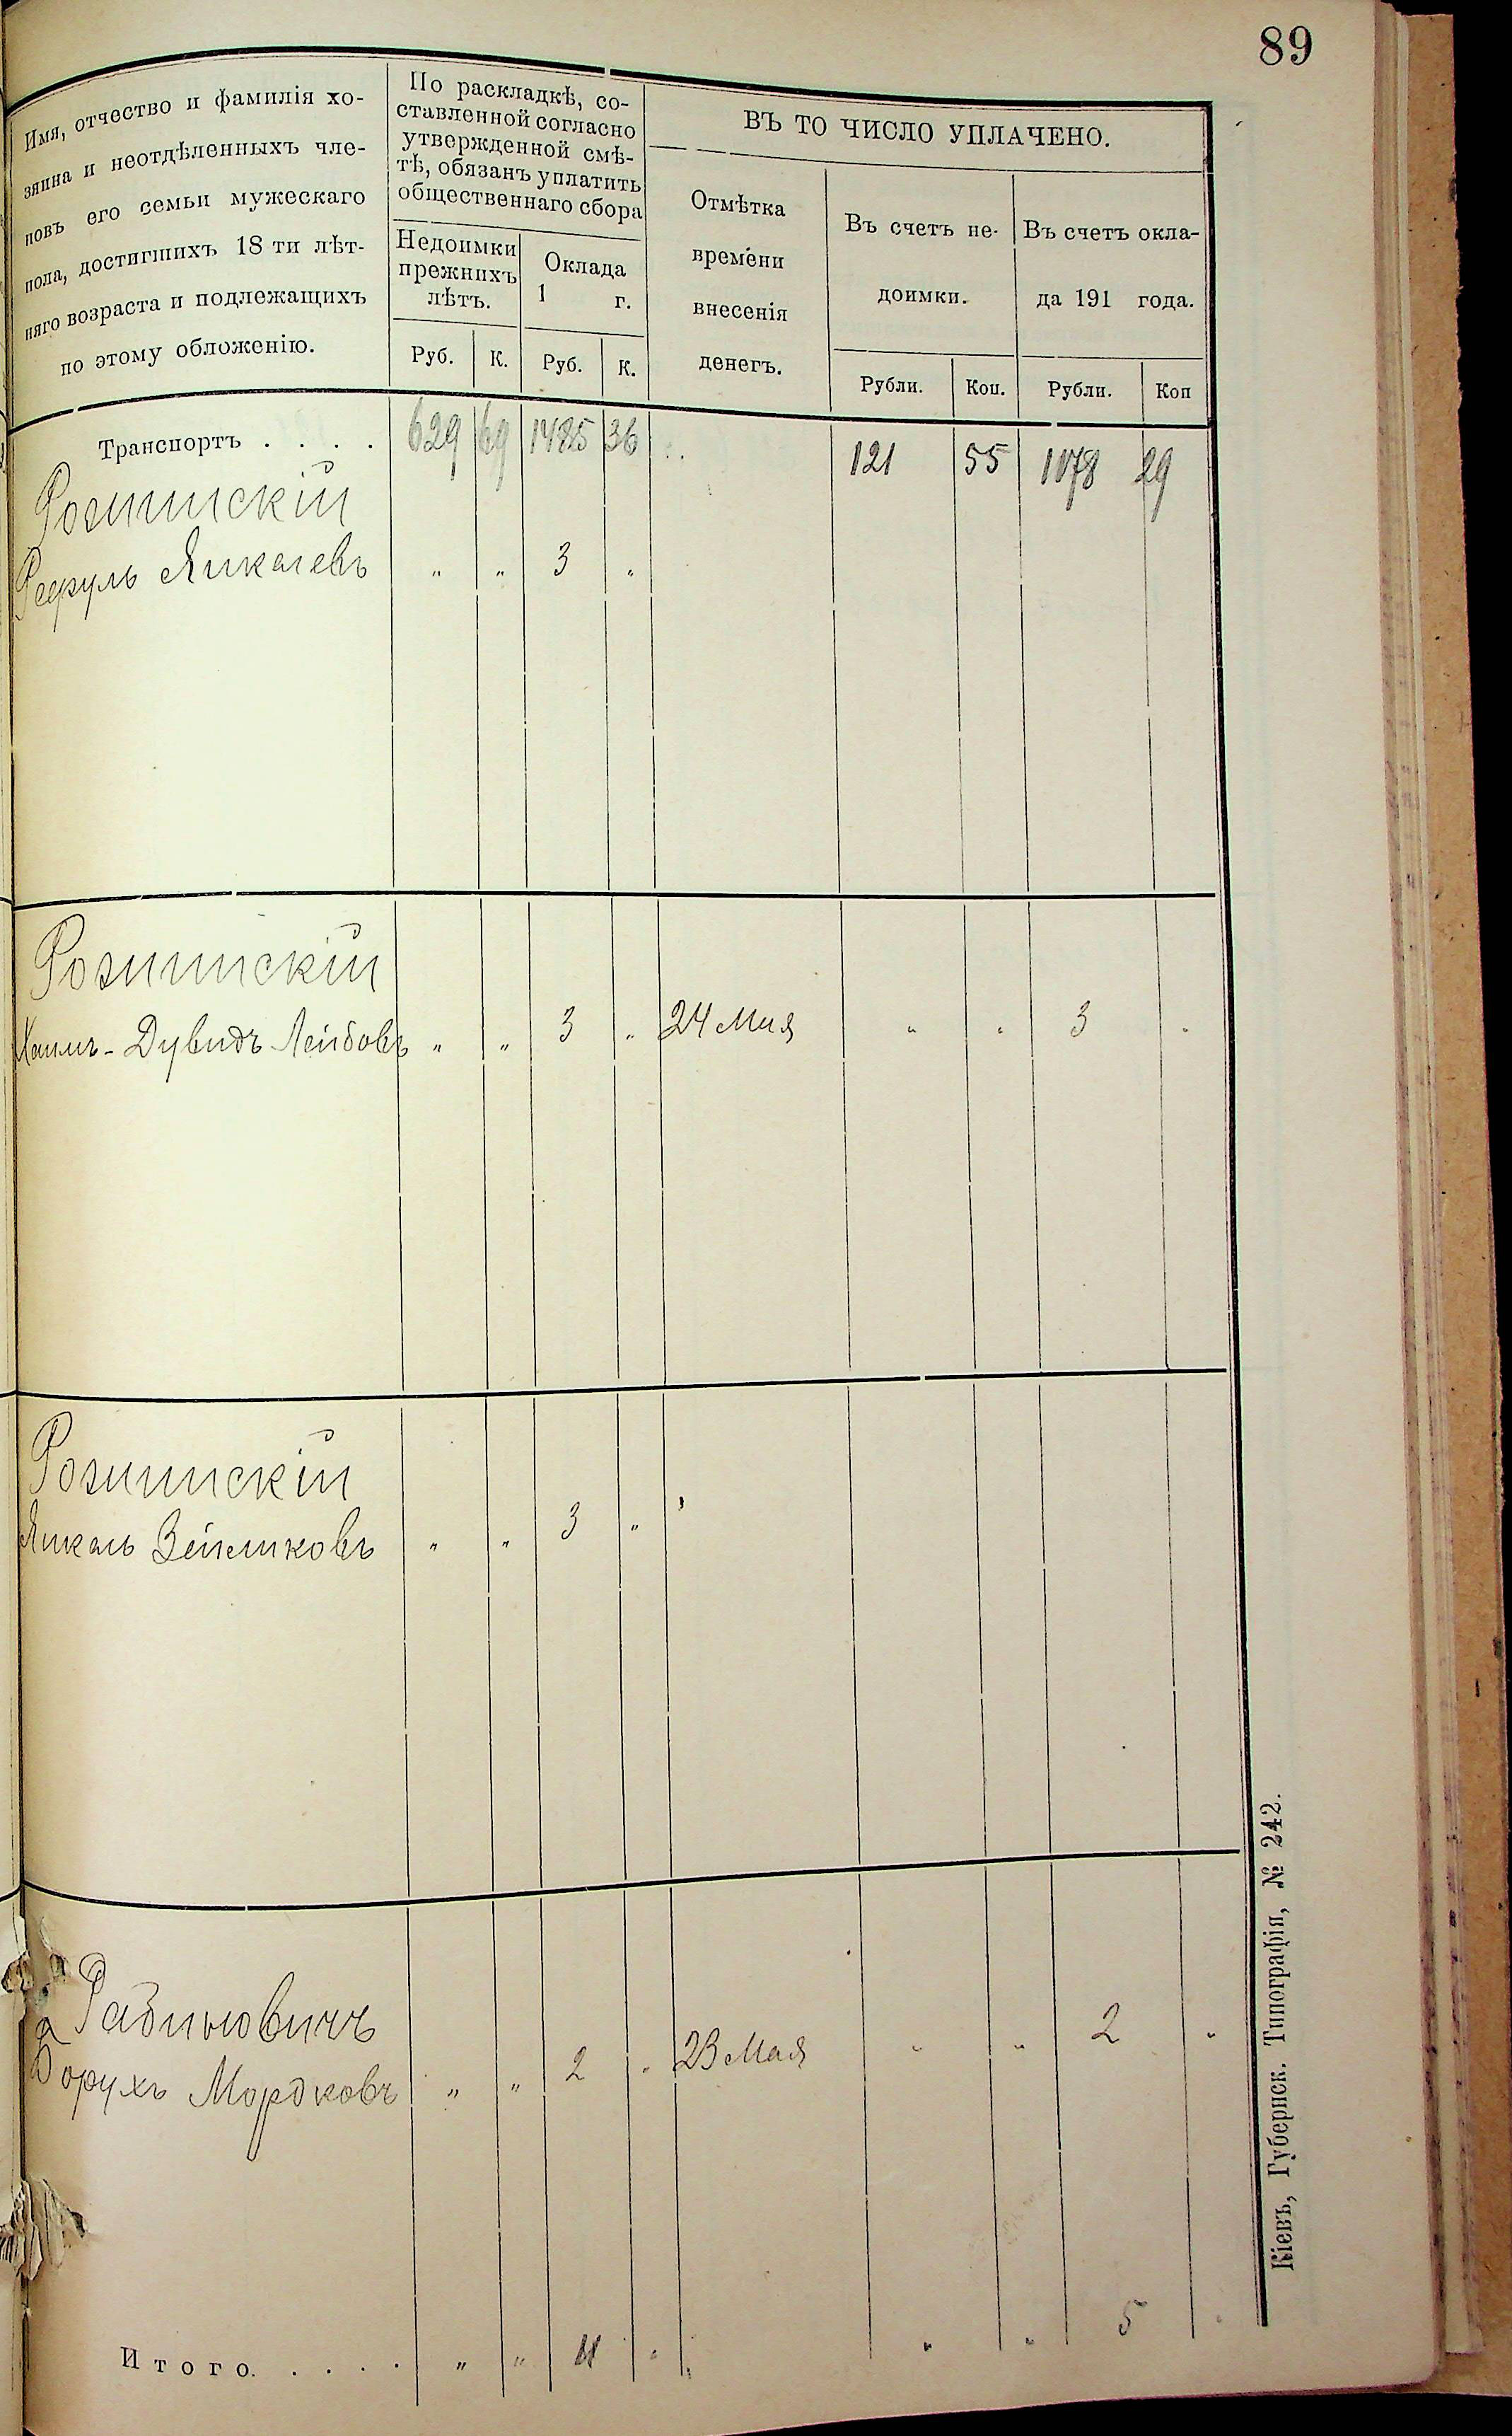 89
Имя, отчество и фамилія хо-
зяина и неотдѣленныхъ чле-
новъ его семьи мужескаго
пола, достигшихъ 18 ти лѣт-
няго возраста и подлежащихъ
по этому обложенію.
По раскладкѣ, со-
ставленной согласно
утвержденной смѣ-
тѣ, обязанъ уплатить
общественнаго сбора
Недоимки
прежнихъ
лѣтъ.
Оклада
1 г.
Руб. К. Руб. К.
ВЪ ТО ЧИСЛО УПЛАЧЕНО.
Отмѣтка
времени
внесенія
денегъ.
Въ счетъ не-
доимки.
Въ счетъ окла-
да 191 года.
Рубли. Коп. Рубли. Коп
Транспортъ . . . . 629 69 1485 36 121 55 1078 29
Розминскій
Янкелевъ „ „ 3 „
Розминскій
Хаимъ-Дувидъ Лейбовъ „ „ 3 „ 24 Мая „ „ 3 „
Розминскій
Янкель Зейликовъ „ „ 3 „
Рабиновичъ
Борухъ Мордковъ „ „ 2 „ 23 Мая „ „ 2 „
Итого. . . . . „ „ 11 „ „ „ 5 „
Кіевъ, Губернск. Типографія, № 242.